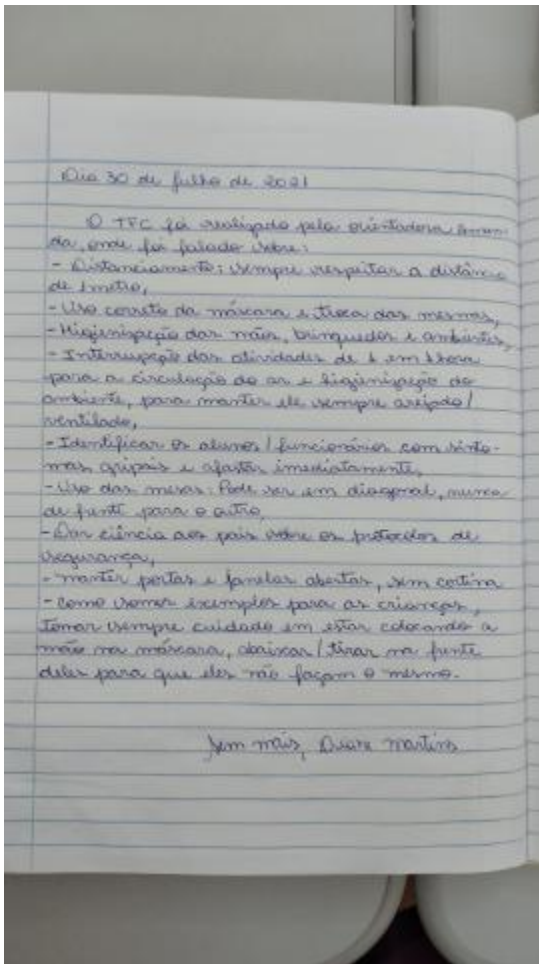 Dia 30 de julho de 2021
O TFC foi realizado pela orientadora
da, onde foi falado sobre:
- Distanciamento: sempre respeitar a distância
de 1 metro,
- Uso correto da máscara e troca das mesmas,
- Higienização das mãos, brinquedos e ambientes,
- Interrupção das atividades de 1 em 1 hora
para a circulação do ar e higienização do
ambiente, para manter ele sempre arejado/
ventilado,
- Identificar os alunos/funcionários com sinto-
mas gripais e afastar imediatamente,
- Uso das mesas: Pode ser em diagonal, nunca
de frente para o outro,
- Dar ciência aos pais sobre os protocolos de
segurança,
- manter portas e janelas abertas, sem cortina
- como somos exemplos para as crianças,
tomar sempre cuidado em estar colocando a
mão na máscara, abaixar/tirar na frente
deles para que eles não façam o mesmo.
Sem mais, Martins